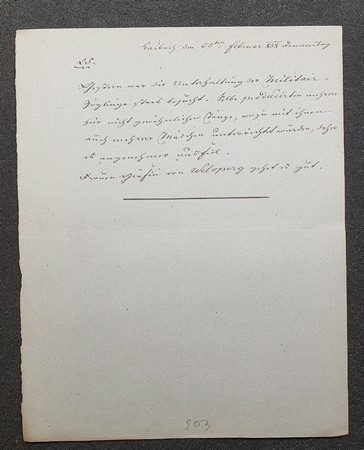 Laibach den 20ten Februar 1838 Donnerstag
Gestern war die Unterhaltung der Militair-
Zöglinge stark besucht. Alle producirten mehre-
re nicht gewöhnliche Tänze, wozu mit ihnen
auch mehrere Mädchen unterrichtet wurden, daher
es angenehmer ausfiel.
Frauen Gräfin von Welsperg gehet es gut.
803